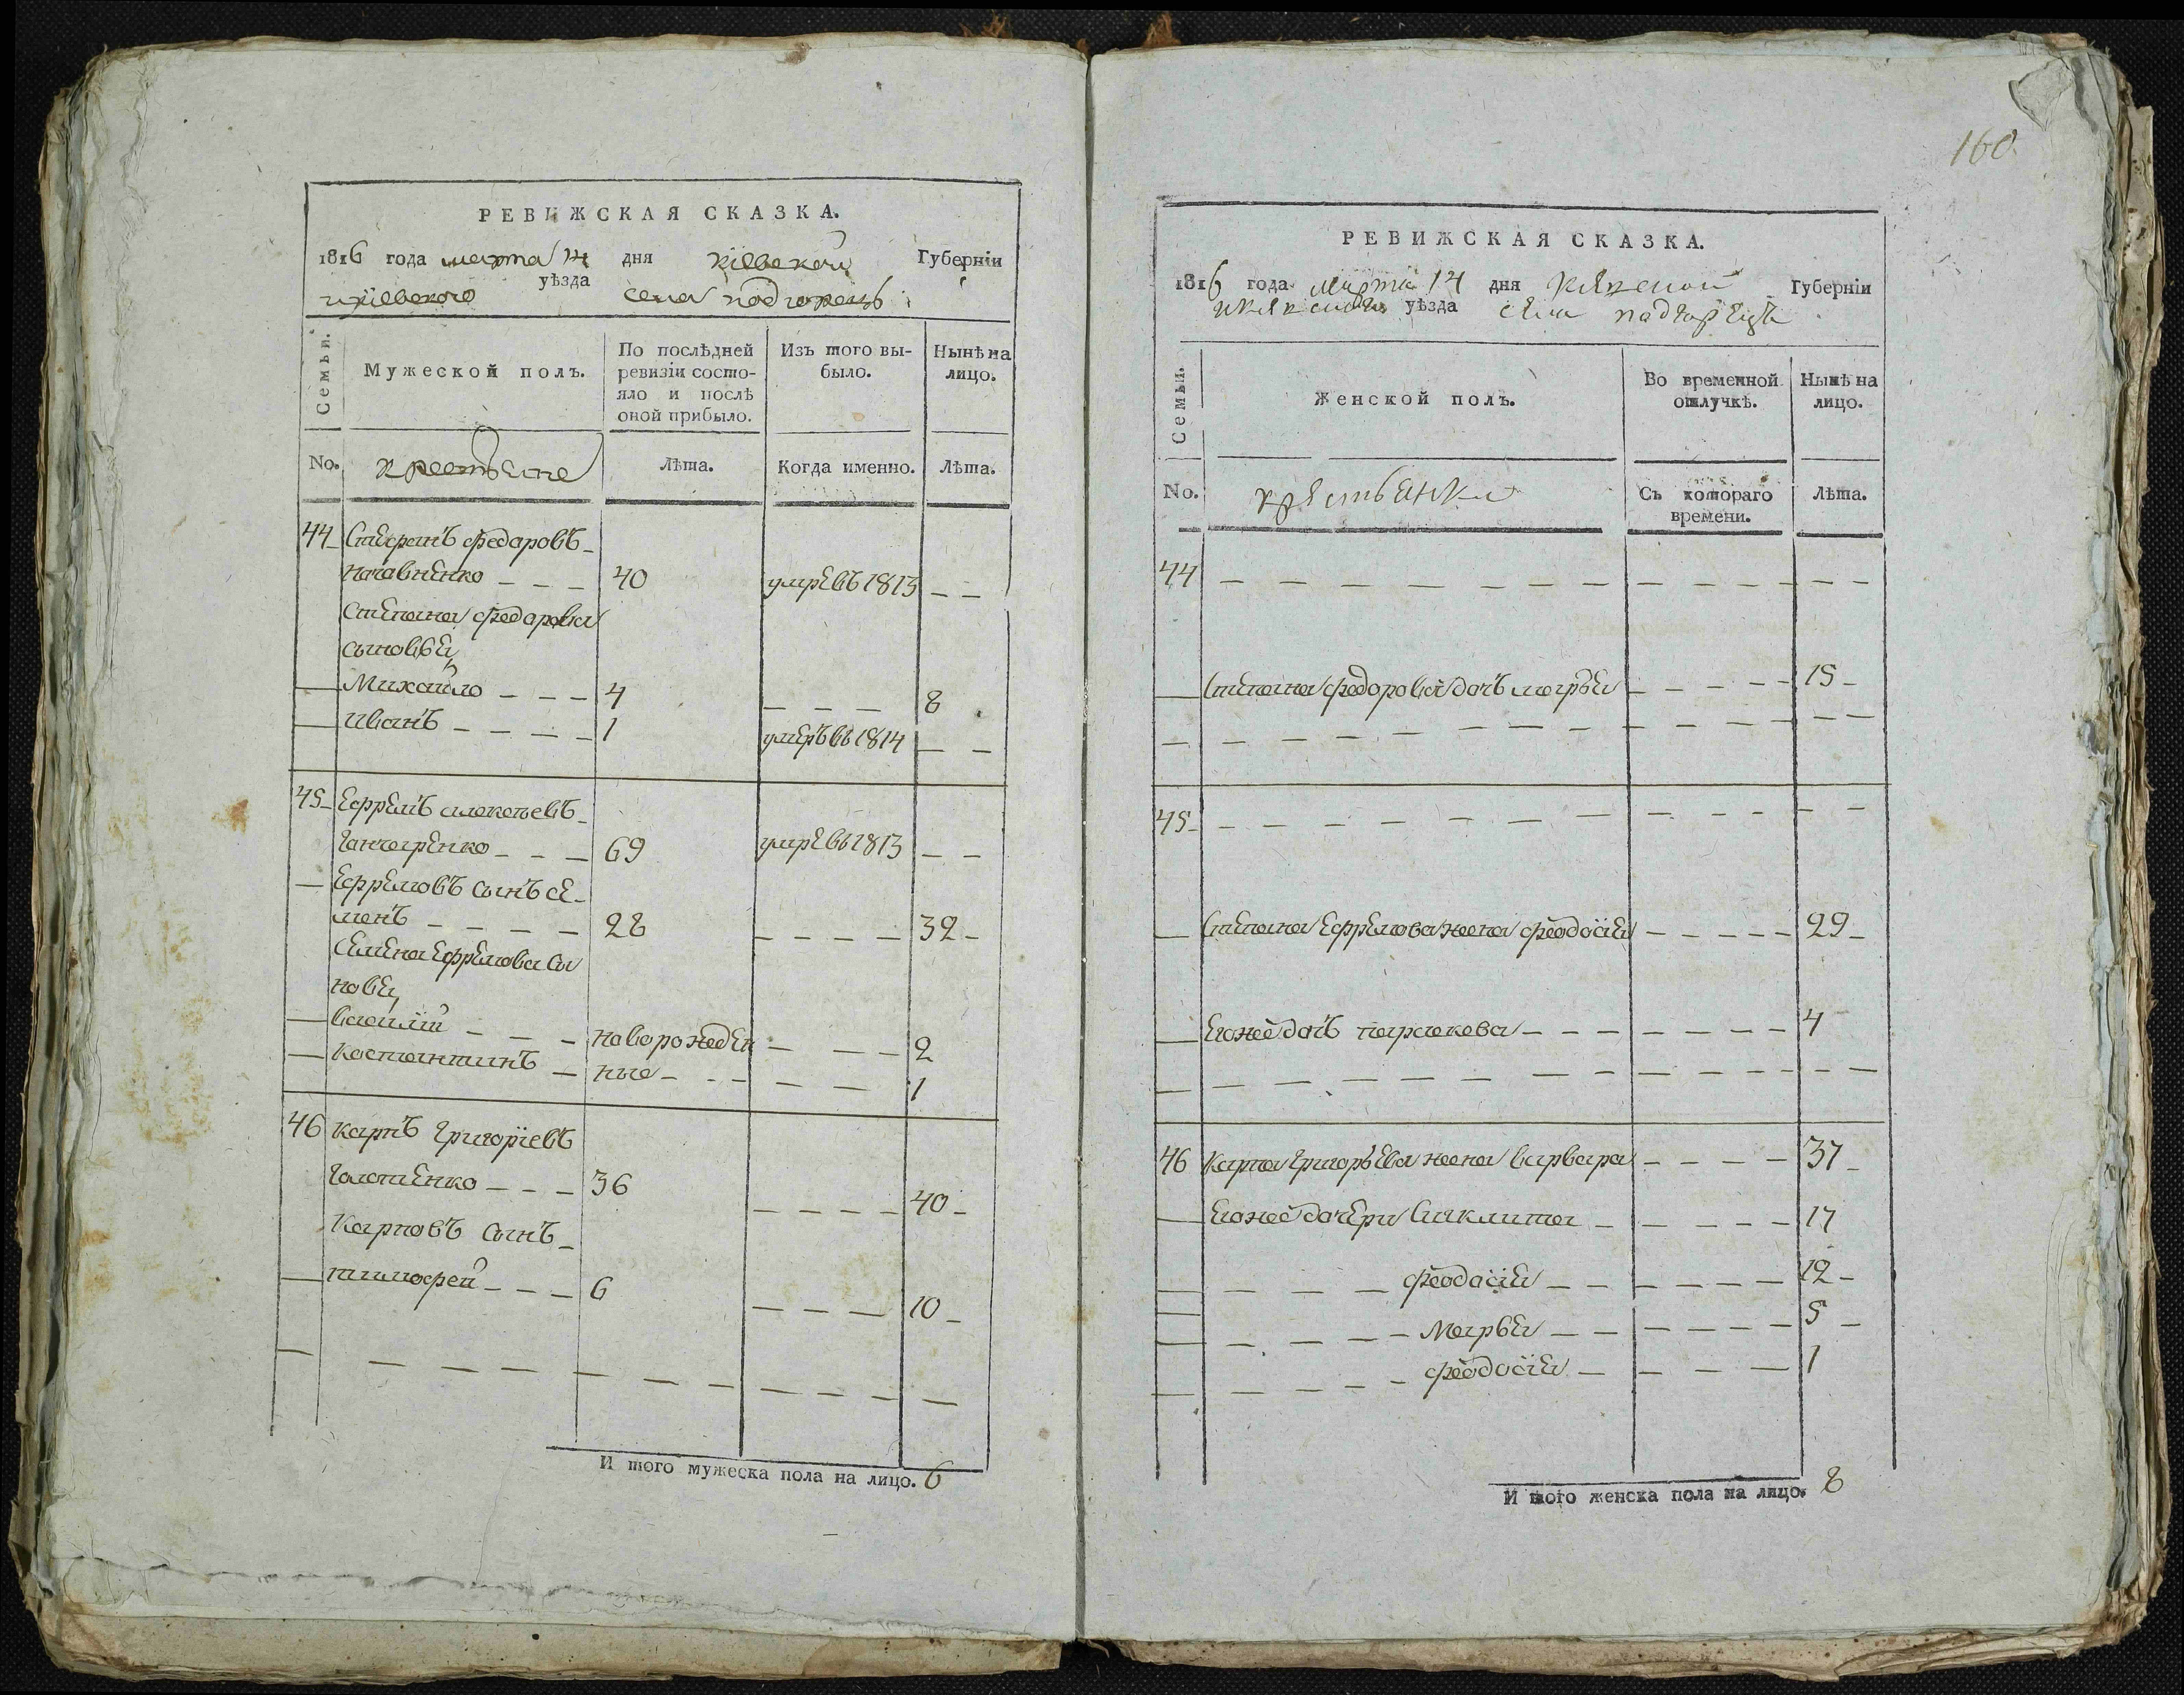 РЕВИЖСКАЯ СКАЗКА.
1816 года марта 14 дня Кіевской Губерніи
и Кіевского уѣзда села подгорецъ
Семьи.
Мужеской полъ.
По послѣдней ревизіи состо-
яло и послѣ оной прибыло.
Изъ того вы-
было.
Нынѣ на
лицо.
No.
крестьяне
Лѣта.
Когда именно.
Лѣта.
44 Стефанъ Федаровъ
40 умре въ 1813
Степана Федарова
сыновья
Михайло 4 8
Иванъ 1 умеръ въ 1814
45 Ефремъ алексеевъ
Ганчаренко 69 умре въ 1813
Ефремовъ сынъ се-
менъ 28 32
Семена Ефремова сы
новя
василій наворожден 2
костантинъ ные 1
46 карпъ Григоріевъ
36 40
Карповъ сынъ
тимофей 6 10
И того мужеска пола на лицо. 6
160.
РЕВИЖСКАЯ СКАЗКА.
1816 года марта 14 дня Губерніи
уѣзда села падгорецъ
Семьи.
Женской полъ.
Во временной
отлучкѣ.
Нынѣ на
лицо.
No.
крестьянки
Съ котораго
времени.
Лѣта.
44
Степана Федорова дочъ марья 15
45
Степана Ефремова жена феодосия 29
Ево же дочъ параскева 4
46 Карпа Григорьева жена варвара 37
Ево же дочери 17
феодосия 12
Марья 5
феодосия 1
И того женска пола на лицо. 8